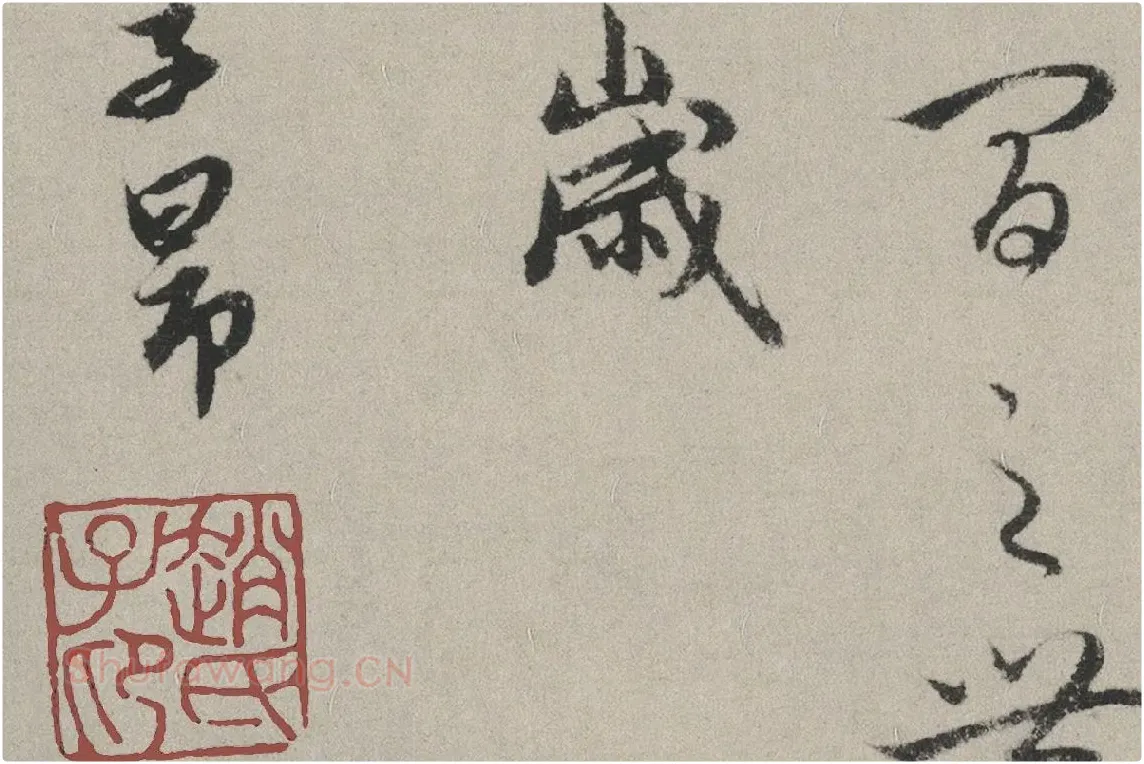 間之
歲
子昂
趙氏子昂
Shufawang.CN